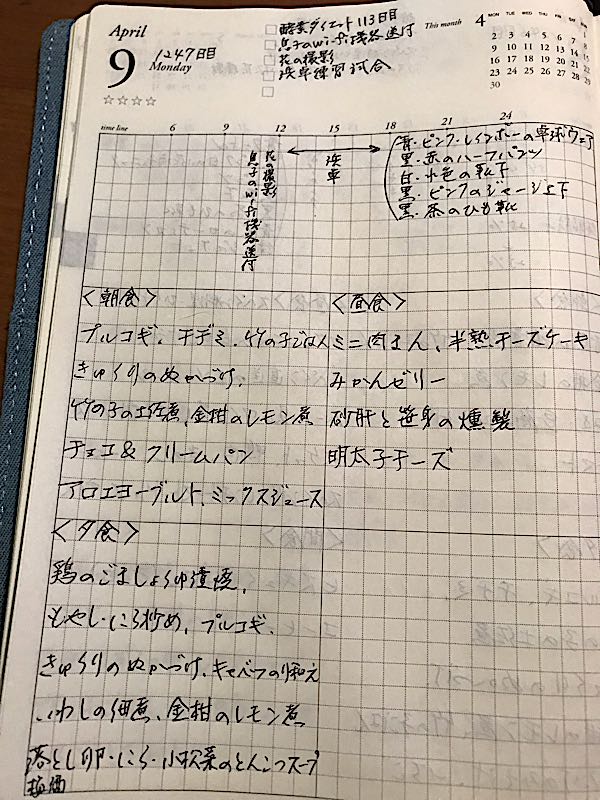 April
9 1247日目
Monday
☆☆☆☆
酵素ダイエット113日目
息子のwi-fi機器送付
花の撮影
浜卓練習試合
This month 4
MON TUE WED THU FRI SAT SUN
1
2 3 4 5 6 7 8
9 10 11 12 13 14 15
16 17 18 19 20 21 22
23 24 25 26 27 28 29
30
time line 6 9 12 15 18 21 24
花の撮影
息子のwifi機器送付
浜卓
青・ピンク・レインボーの卓球ウェア
黒・赤のハーフパンツ
白・水色の靴下
黒・ピンクのジャージ上下
黒・茶のひも靴
<朝食>
プルコギ、チヂミ、竹の子ごはん
きゅうりのぬかづけ、
竹の子の土佐煮、金柑のレモン煮
チョコ&クリームパン
アロエヨーグルト、ミックスジュース
<昼食>
ミニ肉まん、半熟チーズケーキ
みかんゼリー
砂肝と笹身の燻製
明太子チーズ
<夕食>
鶏のごましょうゆ漬焼、
もやし・にら炒め、プルコギ、
きゅうりのぬかづけ、キャベツの和え
いわしの佃煮、金柑のレモン煮
落とし卵・にら・小松菜のとんこつスープ